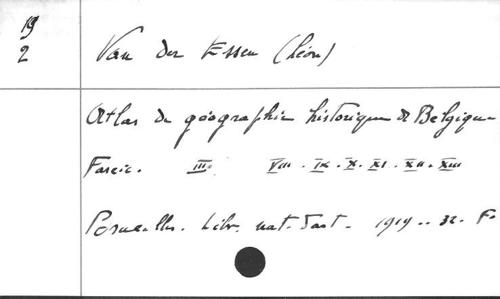 19
2
Van der Essen (Léon)
Atlas de géographie historique de Belgique
Fascic. III. VIII. IX. X. XI. XII. XIII
Bruxelles. Libr. nat. d'art. 1919-32. F.